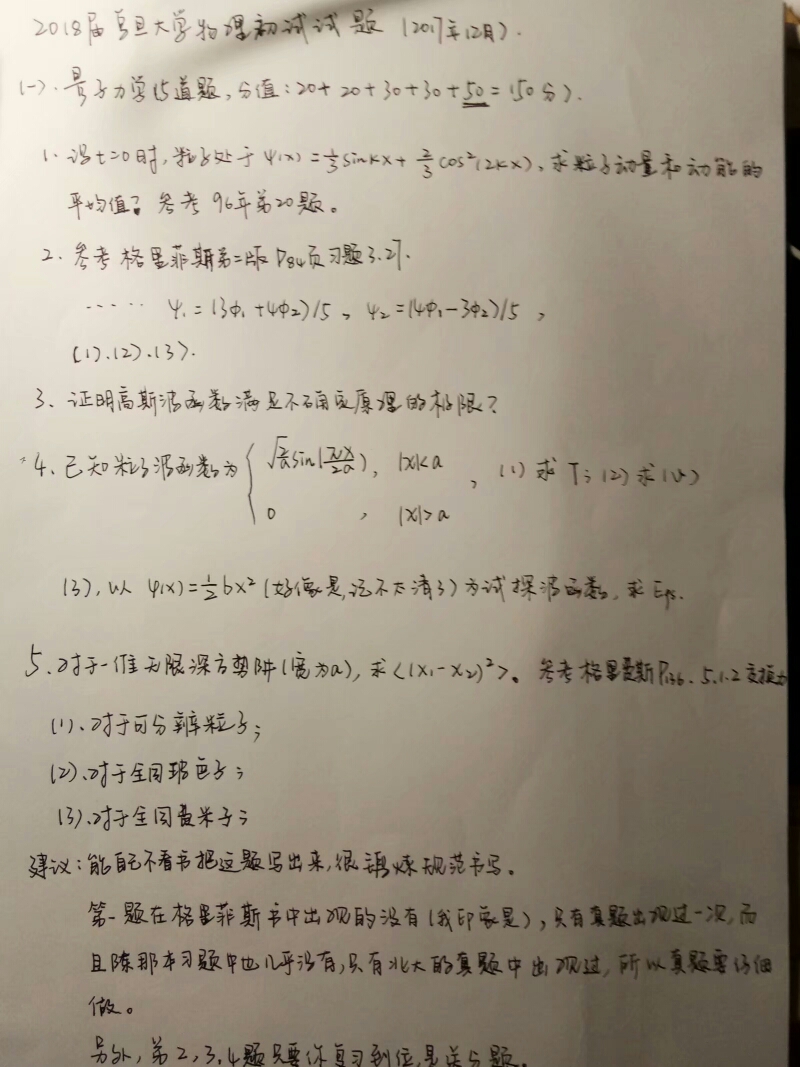 2018届复旦大学物理初试试题 (2017年12月).
(一).量子力学(5道题,分值:20+20+30+30+50=150分).
1.设t=0时,粒子处于ψ(x)=1/3sinkx+2/3cos²(2kx),求粒子动量和动能的
平均值?参考96年第20题。
2.参考格里菲斯第二版P84页习题3.27.
…… ψ₁=(3φ₁+4φ₂)/5、ψ₂=(4φ₁-3φ₂)/5,
(1).(2).(3).
3、证明高斯波函数满足不确定原理的极限?
*4、已知粒子波函数为{ sin(πx/2a), |x|<a
0, |x|>a ,(1)求T;(2)求(V)
(3),以ψ(x)=1/2bx²(好像是,记不太清了)为试探波函数,求Egs.
5、对于一维无限深方势阱(宽为a),求<(x₁-x₂)²>。参考格里菲斯P136.5.1.2交换力
(1)、对于可分辨粒子;
(2)、对于全同玻色子;
(3)、对于全同费米子;
建议:能自己不看书把这题写出来,很锻炼规范书写。
第一题在格里菲斯书中出现的没有(我印象是),只有真题出现过一次,而
且陈那本习题中也几乎没有,只有北大的真题中出现过,所以真题要仔细
做。
另外,第2,3,4题只要你复习到位,是送分题。